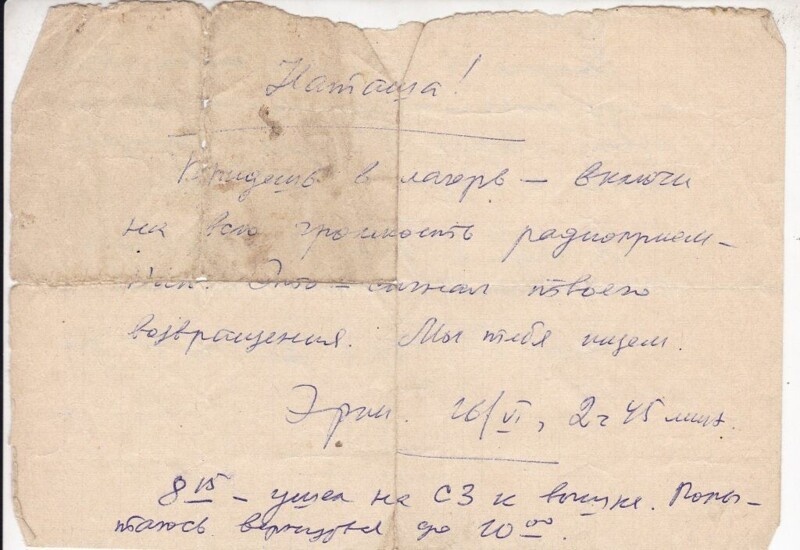 Наташа!
Придешь в лагерь — включи
на всю громкость радиоприем-
ник. Это — сигнал твоего
возвращения. Мы тебя ищем.
Эрик. 26/VI, 2ч 45 мин.
8 15 — ушел на СЗ к вышке. Попы-
таюсь вернуться до 10 00.